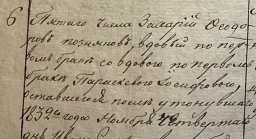 6 Пятаго числа Захарій Ѳеодо-
ровъ вдовый по пер-
вомъ бракѣ со вдовою по первомъ
бракѣ Параскевою Іосифовою
оставшеюся послѣ утонувшаго
1832 года Ноября Четвертаго
дня